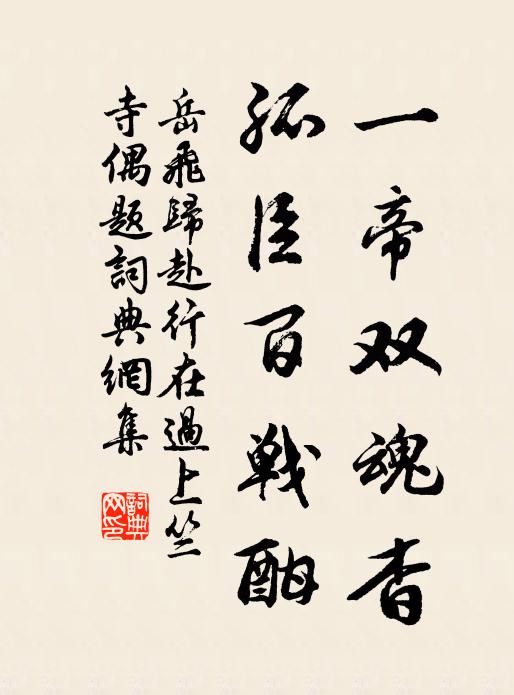 一帝双魂杳
孤臣百戦酣
岳飛歸赴行在過上竺
寺偶题詞典網集
詞典
网印